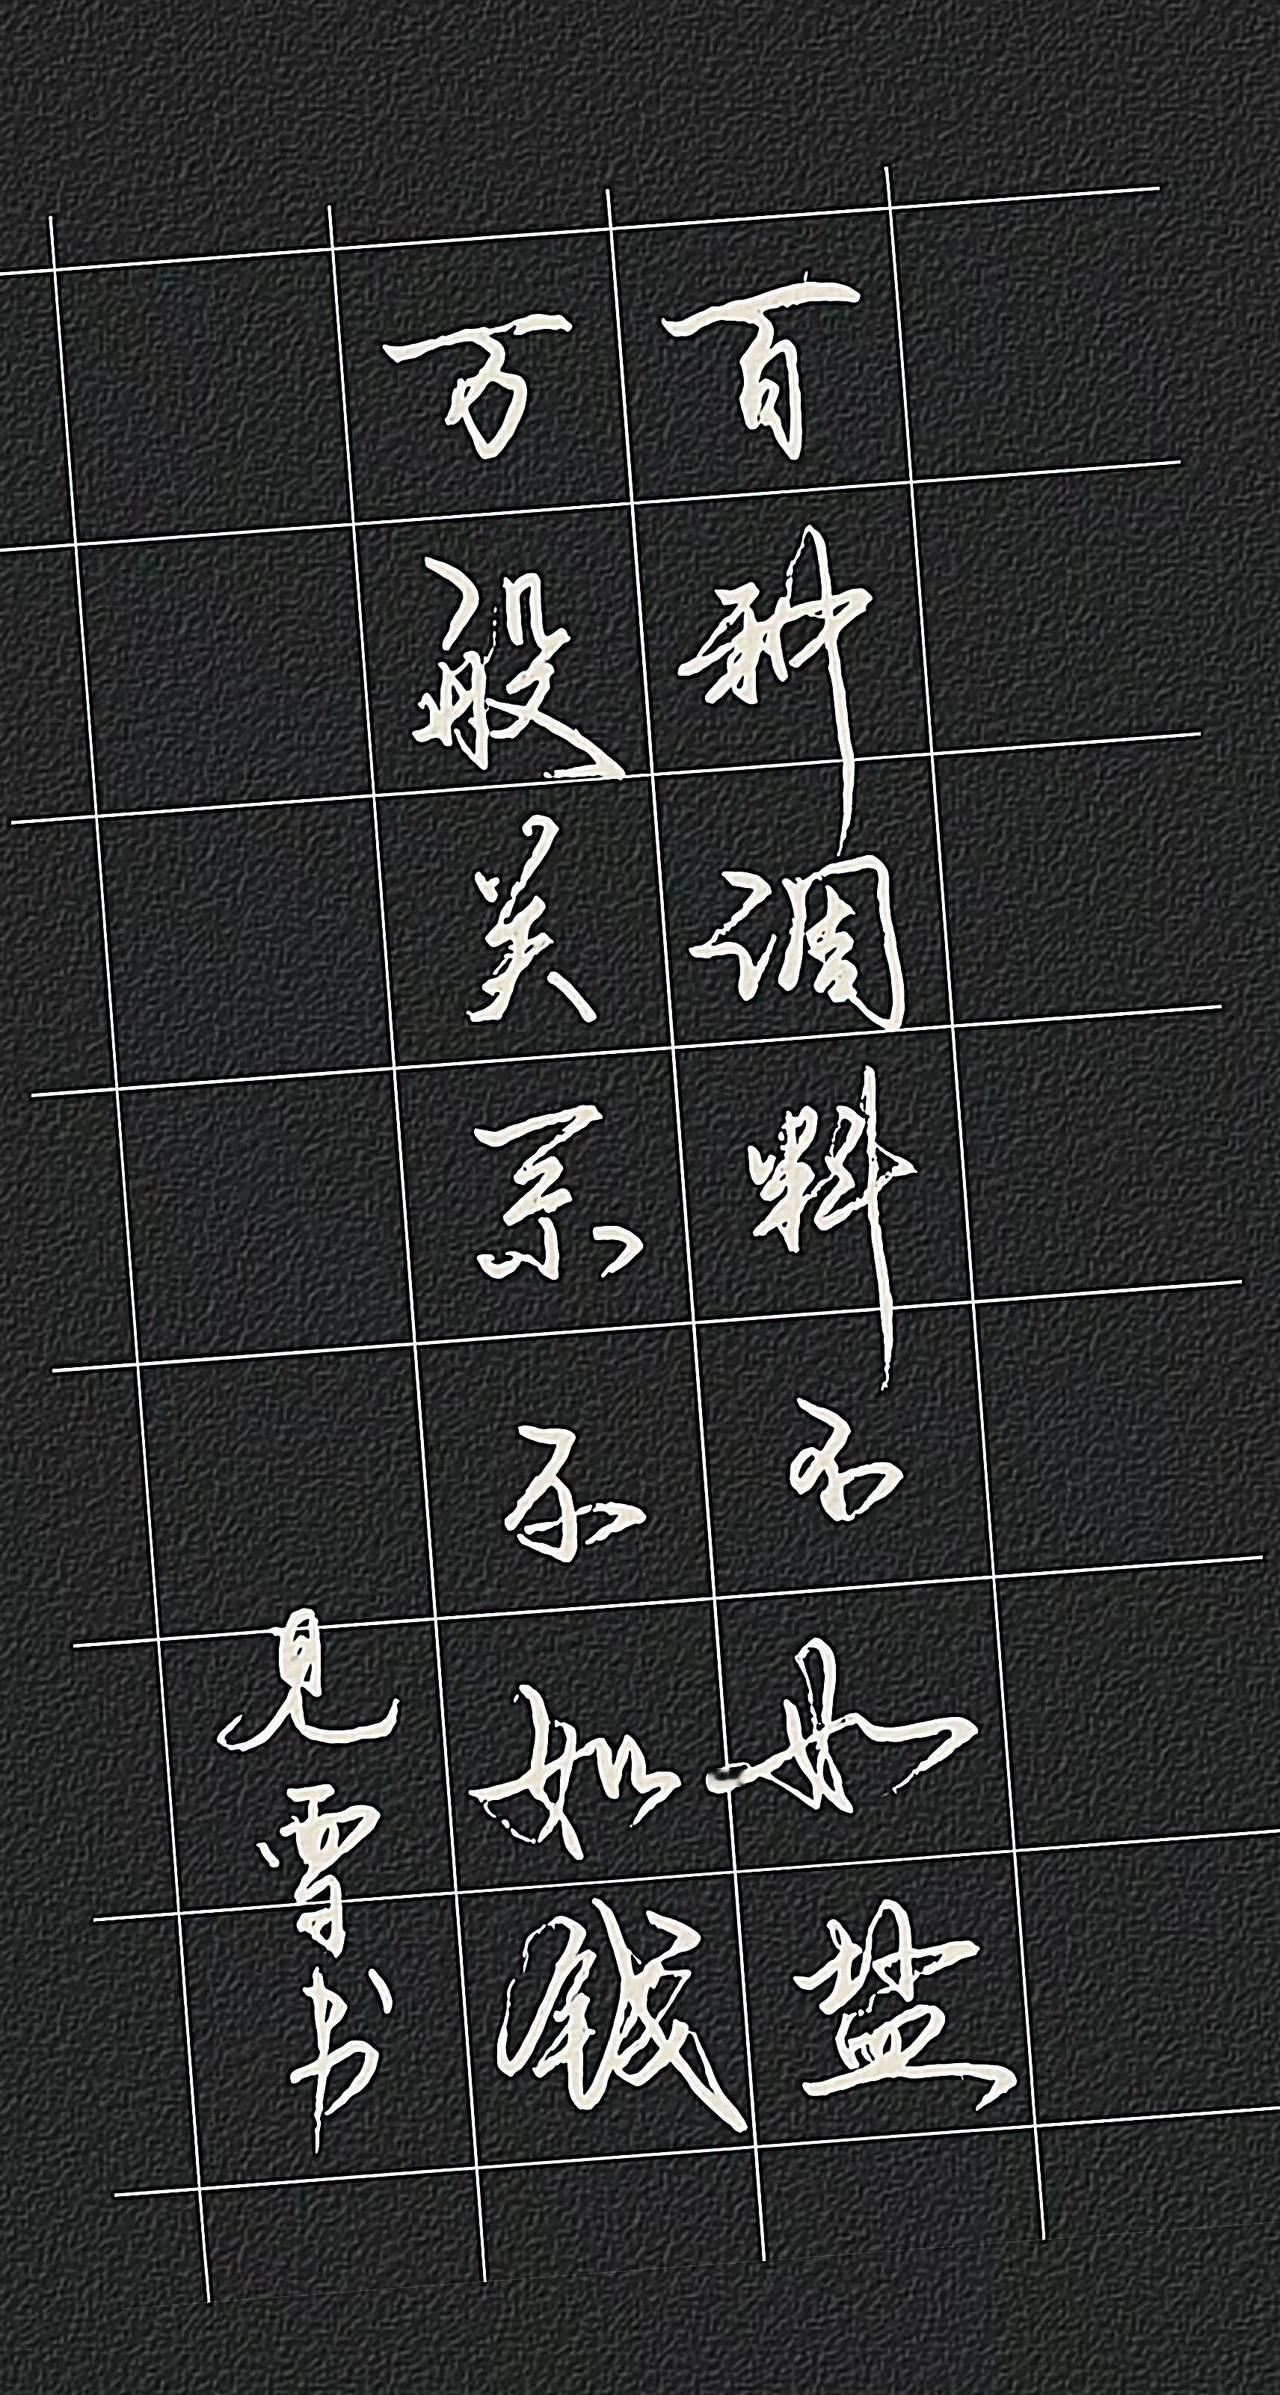 百种调料不如盐
万般关系不如钱
见雪书